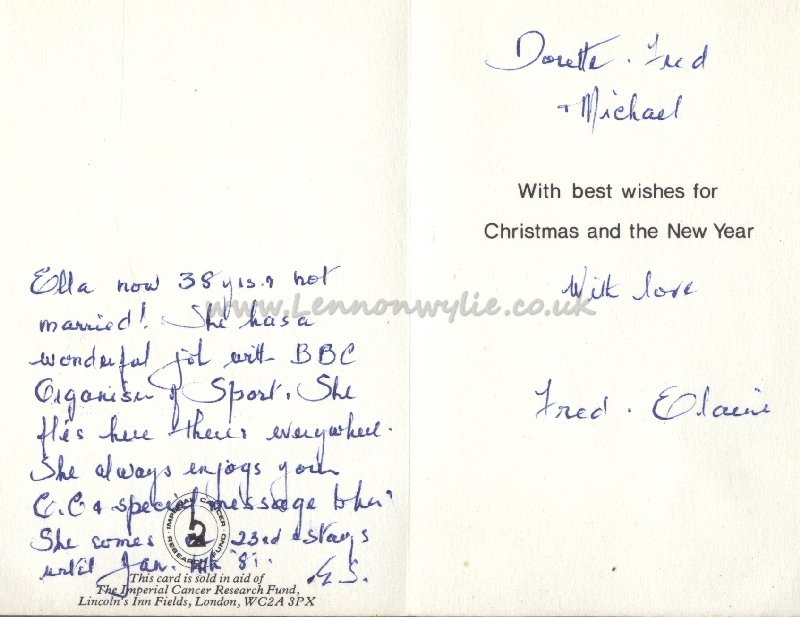 Ella now 38 yrs. & not
married! She has a
wonderful job with BBC
Organiser of Sport. She
flies here there & everywhere.
She always enjoys your
C.C & special message to her.
She comes on 23rd & stays
until Jan. '81.
E.S.
IMPERIAL CANCER RESEARCH FUND
This card is sold in aid of
The Imperial Cancer Research Fund,
Lincoln's Inn Fields, London, WC2A 3PX
Dorette. Fred
+ Michael
With best wishes for
Christmas and the New Year
With love
Fred. Elaine
www.Lennonwylie.co.uk